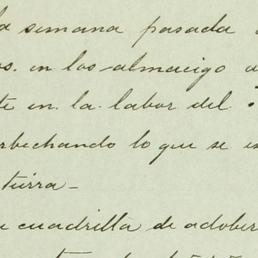 la semana pasada
os. en los almacigo a
te en la labor del
rbechando lo que se es
tierra_
cuadrilla de adober